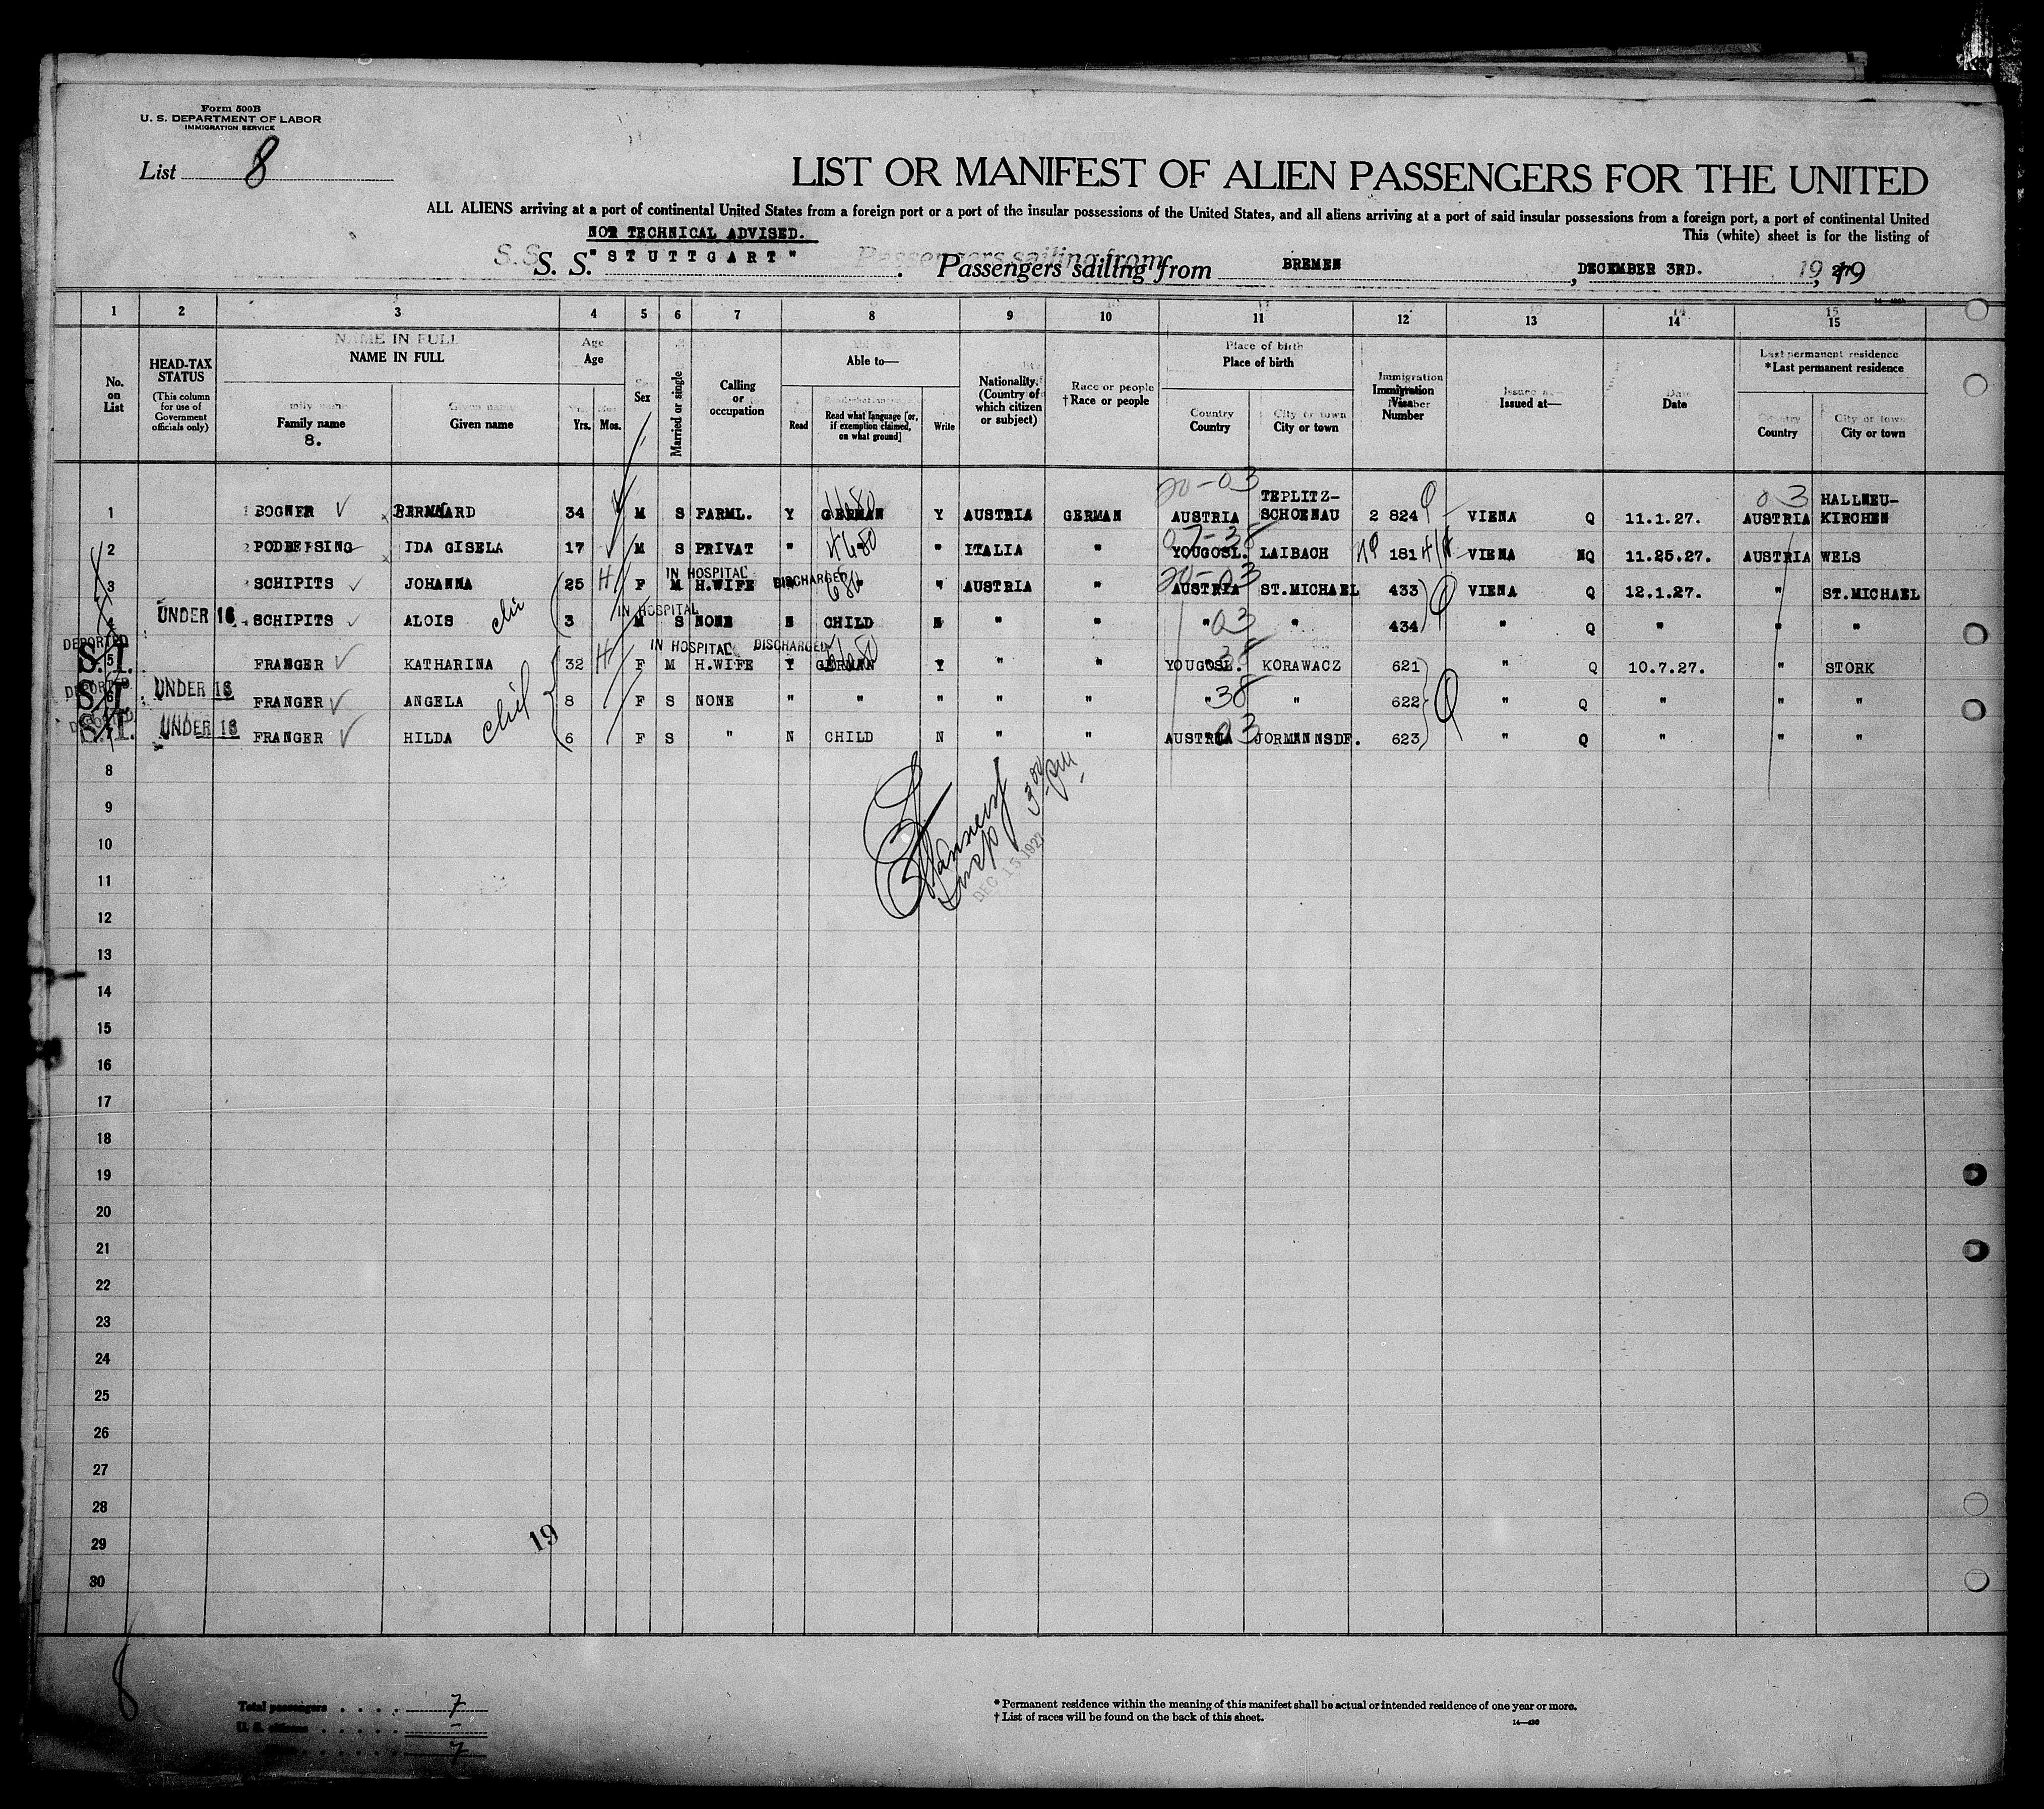 Form 500B
U. S. DEPARTMENT OF LABOR
IMMIGRATION SERVICE
List 8
LIST OR MANIFEST OF ALIEN PASSENGERS FOR THE UNITED
ALL ALIENS arriving at a port of continental United States from a foreign port or a port of the insular possessions of the United States, and all aliens arriving at a port of said insular possessions from a foreign port, a port of continental United
NOT TECHNICAL ADVISED.
This (white) sheet is for the listing of
S. S. "STUTTGART" Passengers sailing from BREMEN, DECEMBER 3RD., 19 27
1 2 3 4 5 6 7 8 9 10 11 12 13 14 15
No. on List
HEAD-TAX STATUS (This column for use of Government officials only)
NAME IN FULL
Family name 8.
Given name
Age
Yrs. Mos.
Sex
Married or single
Calling or occupation
Able to—
Read
Read what language [or, if exemption claimed, on what ground]
Write
Nationality. (Country of which citizen or subject)
†Race or people
Place of birth
Country
City or town
Immigration Visa Number
Issued at—
Date
*Last permanent residence
Country
City or town
20-03 03
1 BOGNER BERNHARD 34 M S FARML. Y GERMAN Y AUSTRIA GERMAN AUSTRIA TEPLITZ-SCHOENAU 2 824 Q VIENA Q 11.1.27. AUSTRIA HALLNEU-KIRCHEN
2 IDA GISELA 17 M S PRIVAT " " ITALIA " YOUGOSL. LAIBACH NQ 181 VIENA NQ 11.25.27. AUSTRIA WELS
IN HOSPITAL DISCHARGED
3 SCHIPITS JOHANNA 25 H F M H.WIFE " " AUSTRIA " 20-03 AUSTRIA ST.MICHAEL 433 Q VIENA Q 12.1.27. " ST.MICHAEL
IN HOSPITAL
4 UNDER 16 SCHIPITS ALOIS 3 M S NONE N CHILD N " " " 03 " 434 " Q " " "
DEPORTED IN HOSPITAL DISCHARGED
S.I. 5 FRANGER KATHARINA 32 H F M H.WIFE Y GERMAN Y " " YOUGOSL. KORAWACZ 621 " Q 10.7.27. " STORK
DEPORTED
S.I. 6 UNDER 16 FRANGER ANGELA 8 F S NONE " " " " " " 38 " 622 Q " Q " " "
DEPORTED
S.I. 7 UNDER 16 FRANGER HILDA 6 F S " N CHILD N " " AUSTRIA 03 JORMANNSDF. 623 " Q " " "
8
9
10
11
12
13
14
15
16
17
18
19
20
21
22
23
24
25
26
27
28
29
30
DEC 15 1927
19
8
Total passengers . . . . 7
U. S. citizens . . . . . –
7
* Permanent residence within the meaning of this manifest shall be actual or intended residence of one year or more.
† List of races will be found on the back of this sheet.
14—430